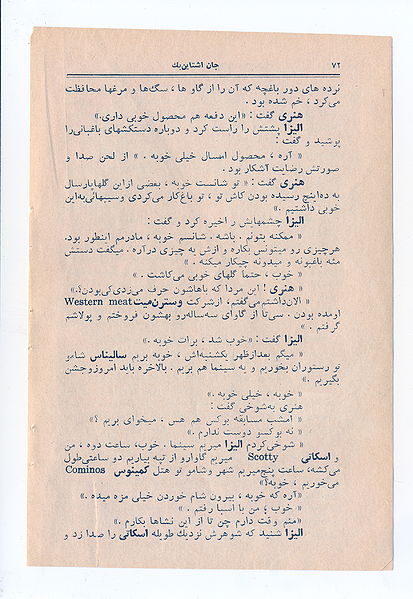 ۷۲ جان اشتاین‌بك
نرده های دور باغچه که آن را از گاو ها ، سگ‌ها و مرغها محافظت
می‌کرد ، خم شده بود .
هنری گفت : «این دفعه هم محصول خوبی داری.»
الیزا پشتش را راست کرد و دوباره دستکشهای باغبانی‌را
پوشید و گفت :
« آره ، محصول امسال خیلی خوبه . » از لحن صدا و
صورتش رضایت آشکار بود .
هنری گفت : « تو شانست خوبه ، بعضی ازاین گلهاپارسال
به ده‌اینچ رسیده بودن کاش تو ، تو باغ‌کار می‌کردی وسیبهائی‌به‌این
خوبی داشتیم .»
الیزا چشمهایش را خیره کرد و گفت :
« ممکنه بتونم . باشه . شانسم خوبه ، مادرم اینطور بود.
هرچیزی رو میتونس بکاره و ازش یه چیزی درآره . میگفت دستش
مثه باغبونه و میدونه چیکار میکنه . »
« خوب ، حتماً گلهای خوبی می‌کاشت . »
« هنری ! این مردا که باهاشون حرف می‌زدی‌کی‌بودن؟.»
« الان‌داشتم‌می‌گفتم، ازشرکت وسترن‌میت Western meat
اومده بودن . سی‌تا از گاوای سه‌ساله‌رو بهشون فروختم و پولاشم
گرفتم . »
الیزا گفت : «خوب شد ، برات خوبه .»
« میگم بعدازظهر یکشنبه‌اش ، خوبه بریم سالیناس شامو
تو رستوران بخوریم و به سینما هم بریم . بالاخره باید امروزوجشن
بگیریم .»
« خوبه ، خیلی خوبه .»
هنری به‌شوخی گفت :
« امشب مسابقه بوکس هم هس . میخوای بریم ؟»
« نه بوکسو دوست ندارم .»
« شوخی‌کردم الیزا میریم سینما . خوب، ساعت دوه ، من
و اسکاتی Scotty میریم گاوارو از تپه بیاریم دو ساعتی‌طول
می‌کشه، ساعت پنج‌میریم شهر وشامو تو هتل کمینوس Cominos
می‌خوریم ، خوبه؟»
«آره که خوبه ، بیرون شام خوردن خیلی مزه میده .»
« خوب ، من با اسبا رفتم . »
«منم وقت دارم چن تا از این نشاها بکارم .»
الیزا شنید که شوهرش نزدیك طویله اسکاتی را صدا زد و